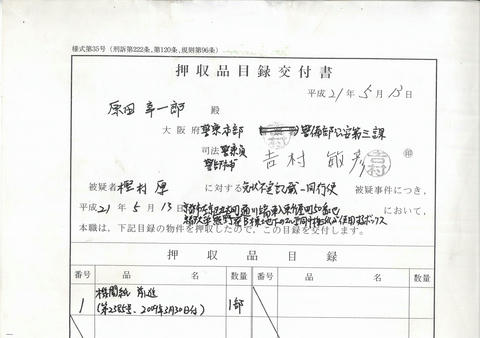 様式第35号(刑訴第222条、第120条、規則第96条)
押収品目録交付書
平成21年5月13日
原田幸一郎 殿
大阪府警察本部 警備部公安第三課
司法警察員
警部補 吉村敏彦 ㊞
被疑者 樫村 厚 に対する 免状不実記載・同行使 被疑事件につき、
平成21年5月13日
において、
本職は、下記目録の物件を押収したので、この目録を交付します。
押収品目録
番号 品名 数量 番号 品名 数量
1 機関紙 前進 1部
(第2385号、2009年3月30日付)